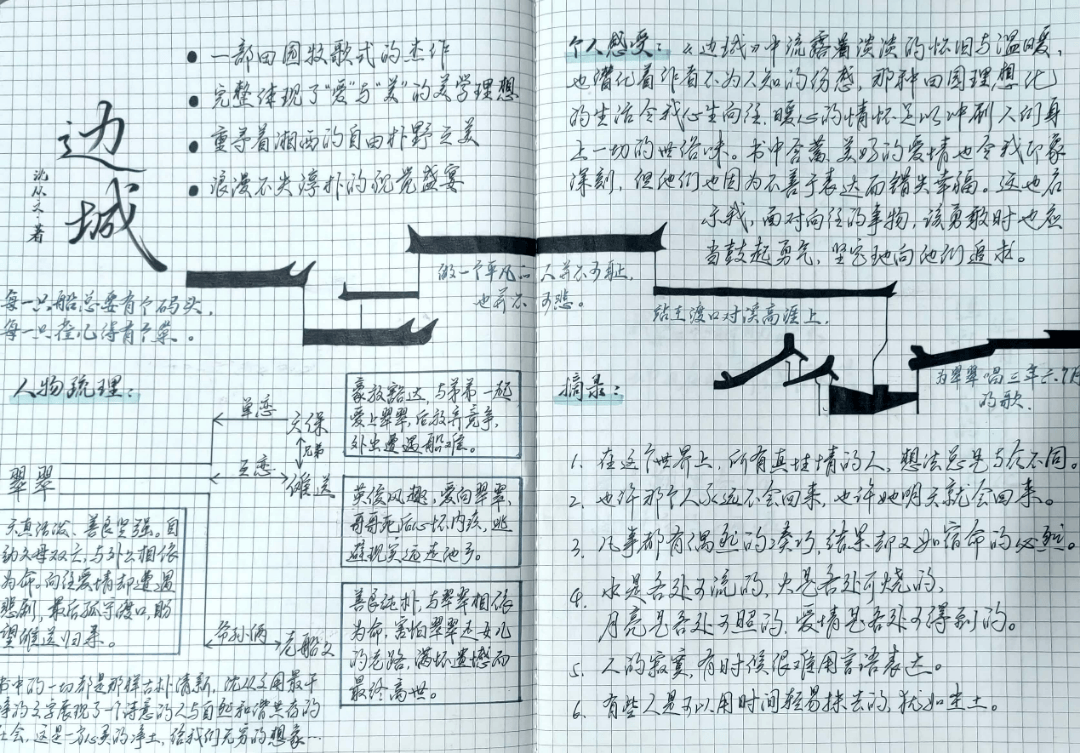 边城
沈从文·著
一部田园牧歌式的杰作
完整体现了“爱”与“美”的美学理想
重寻着湘西的自由朴野之美
浪漫不失淳朴的视觉盛宴
每一只船总要有个码头，
每一只雀儿得有个巢。
做一个平凡的人并不可耻，
也并不可悲。
人物梳理：
单恋
天保
兄弟
互恋
傩送
翠翠
豪放豁达，与弟弟一起
爱上翠翠，后放弃竞争，
外出遭遇船难。
英俊风趣，爱向翠翠，
哥哥死后心怀内疚，逃
避现实远走他乡。
天真活泼、善良坚强。自
幼父母双亡，与外公相依
为命。向往爱情却遭遇
悲剧，最后孤守渡口，盼
望傩送归来。
爷孙俩
老船夫
善良纯朴，与翠翠相依
为命，害怕翠翠走女儿
的老路，满怀遗憾而
最终离世。
书中的一切都是那样古朴清新，沈从文用最干
净的文字展现了一个诗意的人与自然和谐共存的
社会，这是一方心灵的净土，给我们无穷的想象…
个人感受：《边城》中流露着淡淡的怀旧与温暖，
也潜化着作者不为人知的伤感，那种田园理想化
的生活令我心生向往，暖心的情怀足以冲刷人们身
上一切的世俗味。书中含蓄、美好的爱情也令我印象
深刻，但他们也因为不善于表达而错失幸福。这也启
示我，面对向往的事物，该勇敢时也应
当鼓起勇气，坚定地向他们追求。
站在渡口对溪高崖上，
为翠翠唱三年六个月
的歌．
摘录：
1. 在这个世界上，所有真性情的人，想法总是与众不同。
2. 也许那个人永远不会回来，也许她明天就会回来。
3. 凡事都有偶然的凑巧，结果却又如宿命的必然。
4. 水是各处可流的，火是各处可烧的，
月亮是各处可照的，爱情是各处可得到的。
5. 人的寂寞，有时候很难用言语表达。
6. 有些人是可以用时间轻易抹去的，犹如尘土。